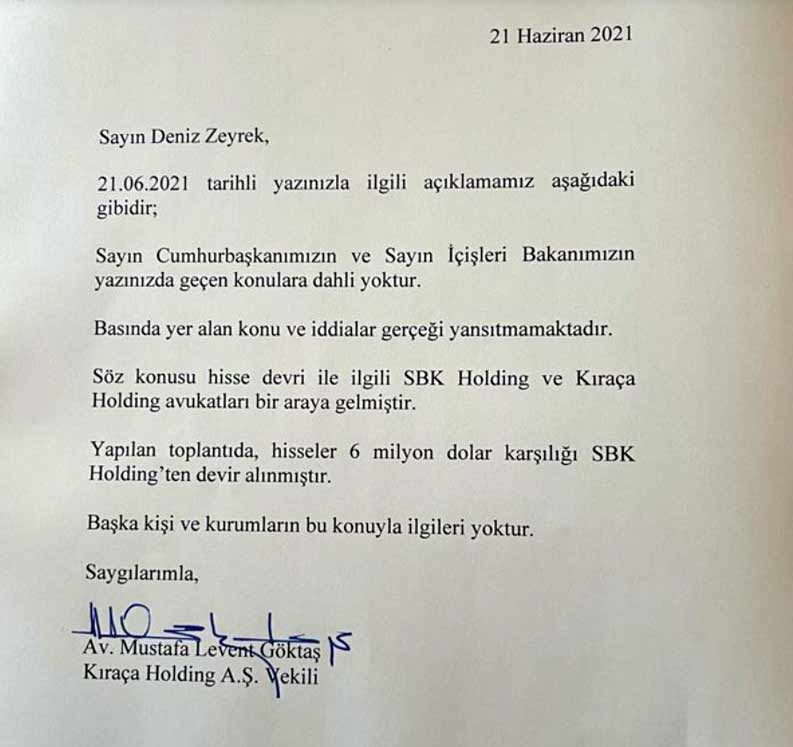 21 Haziran 2021
Sayın Deniz Zeyrek,
21.06.2021 tarihli yazınızla ilgili açıklamamız aşağıdaki
gibidir;
Sayın Cumhurbaşkanımızın ve Sayın İçişleri Bakanımızın
yazınızda geçen konulara dahli yoktur.
Basında yer alan konu ve iddialar gerçeği yansıtmamaktadır.
Söz konusu hisse devri ile ilgili SBK Holding ve Kıraça
Holding avukatları bir araya gelmiştir.
Yapılan toplantıda, hisseler 6 milyon dolar karşılığı SBK
Holding’ten devir alınmıştır.
Başka kişi ve kurumların bu konuyla ilgileri yoktur.
Saygılarımla,
Av. Mustafa Levent Göktaş
Kıraça Holding A.Ş. Vekili